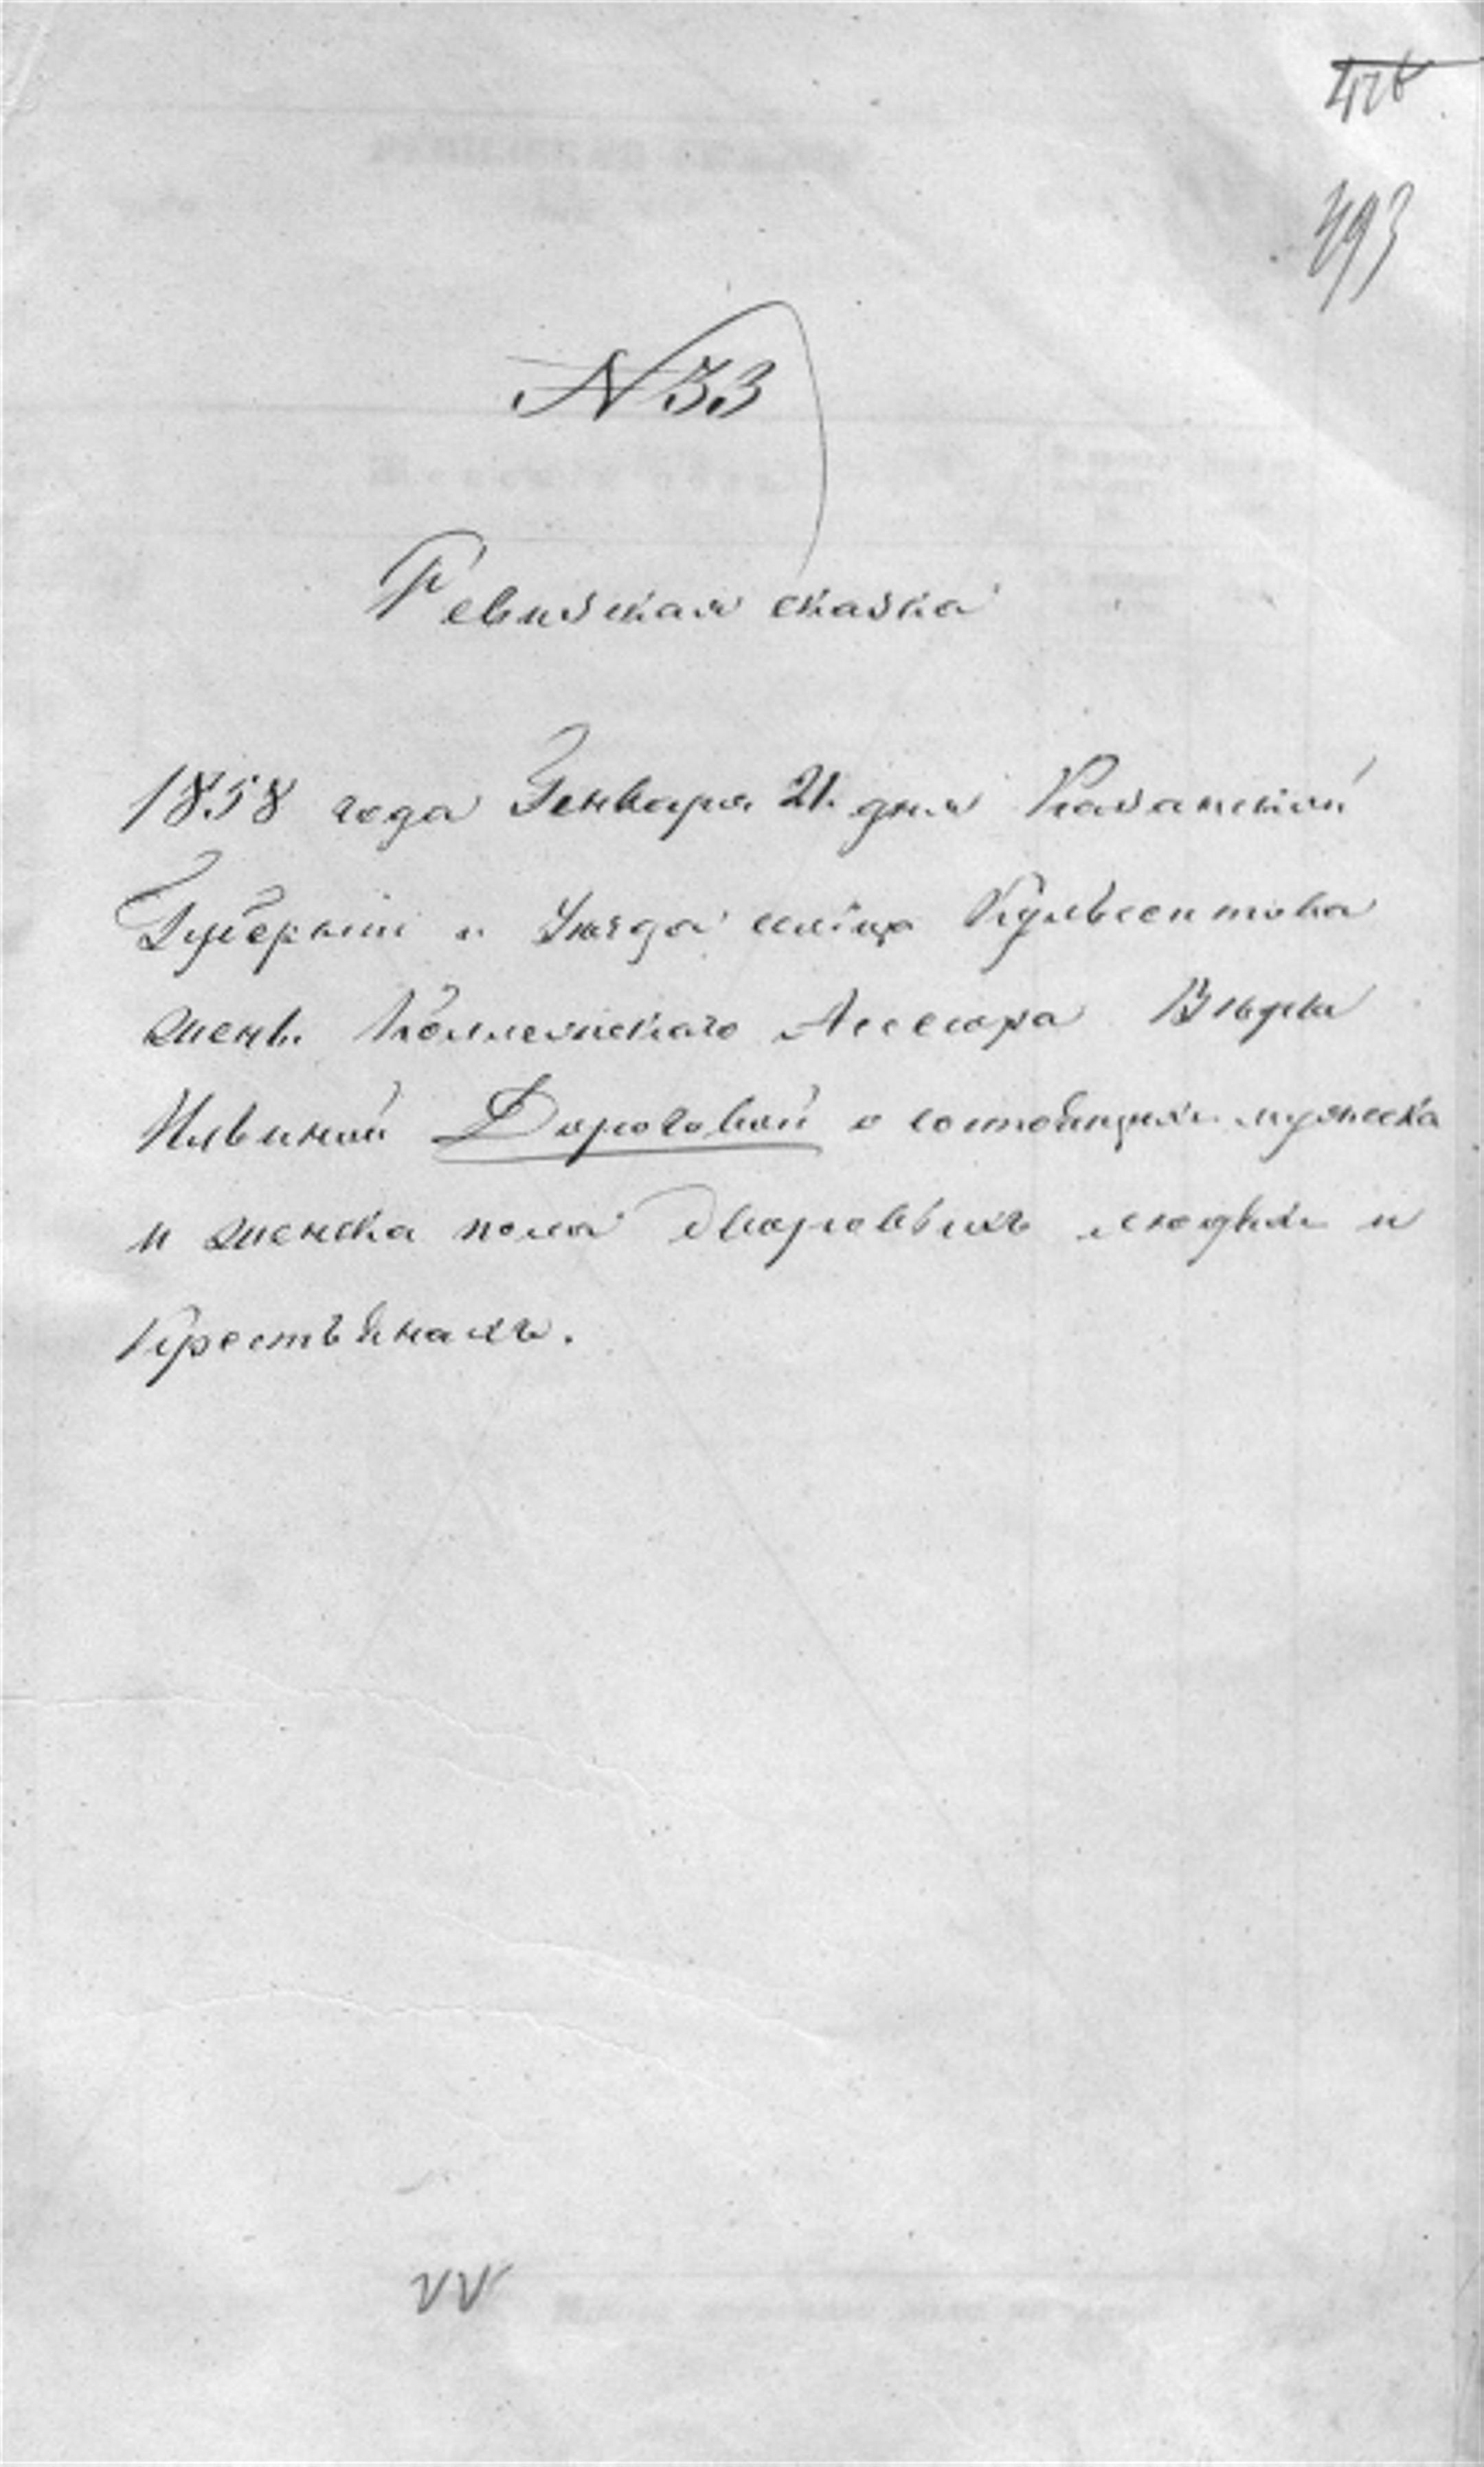 493
N 33
Ревизская сказка
1858 года Генваря 21. дня Казанской
Губерніи и Уѣзда сельца Кульсеитова
женѣ Коллежскаго Асессора Вѣры
Ильиной Дороговой о состоящихъ мужеска
и женска пола дворовыхъ людяхъ и
Крестьянахъ.